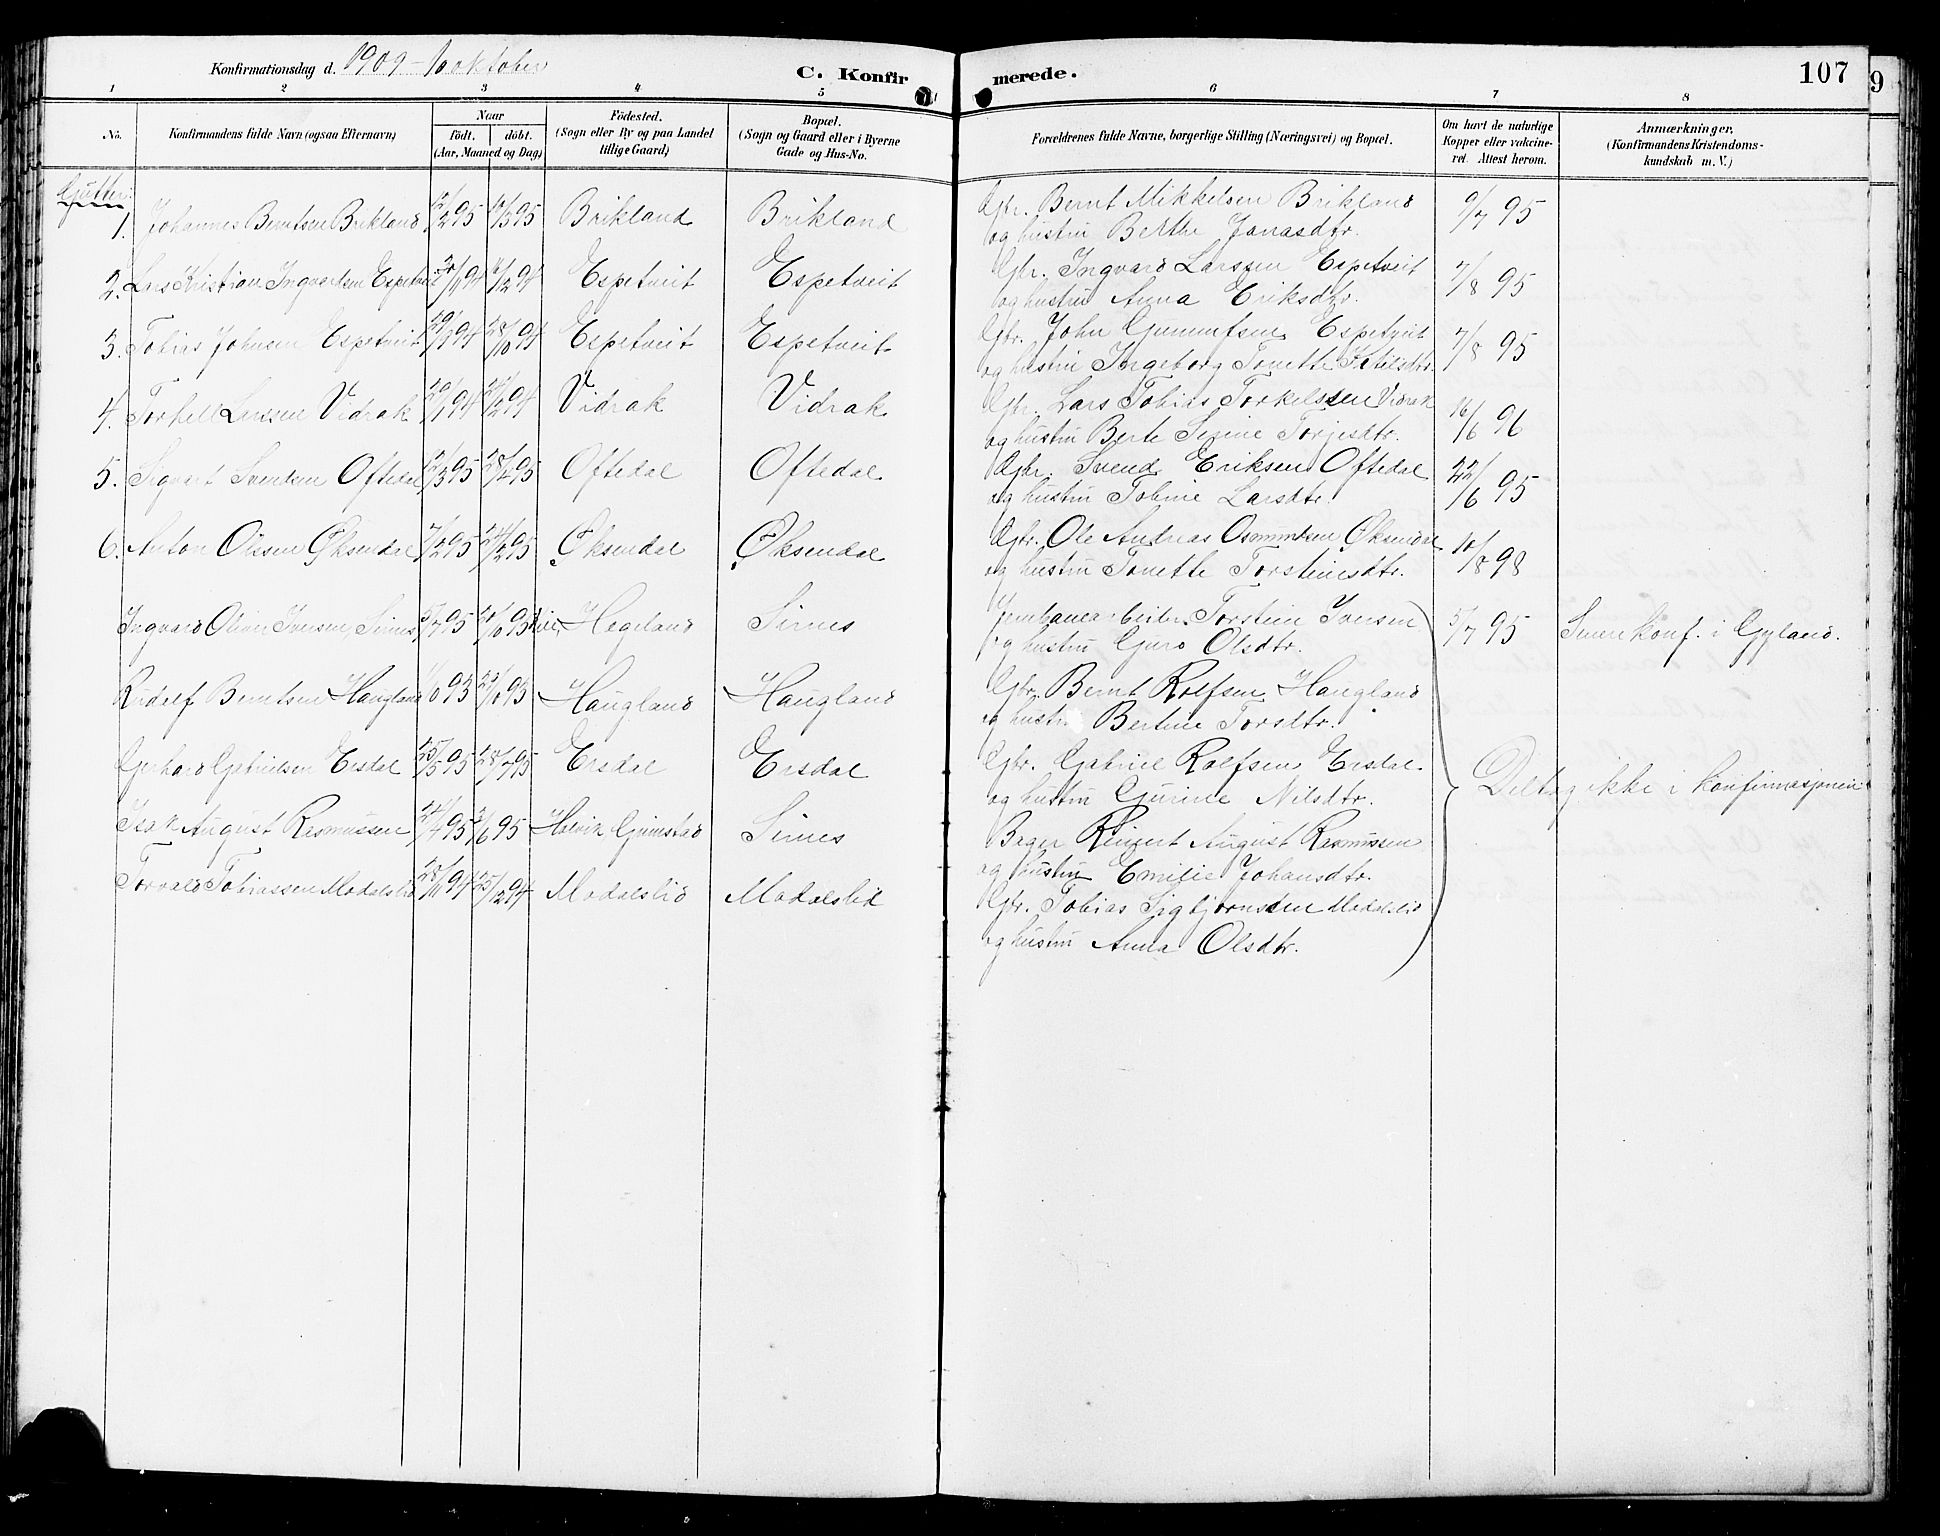 Konfirmationsdag d. 1909 - 10 oktober
C. Konfirmerede.
107
9
1 2 3 4 5 6 7 8
No.
Konfirmandens fulde Navn (ogsaa Efternavn)
Naar
födt. döbt.
(Aar, Maaned og Dag)
Födested.
(Sogn eller By og paa Landet
tillige Gaard)
Bopæl.
(Sogn og Gaard eller i Byerne
Gade og Hus-No.
Forældrenes fulde Navne, borgerlige Stilling (Næringsvei) og Bopæl.
Om havt de naturlige
Kopper eller vakcine-
ret. Attest herom.
Anmærkninger,
(Konfirmandens Kristendoms-
kundskab m. V.)
Gutter:
1. Johannes Berntsen Brikland 12/2 95 10/3 95 Brikland Brikland Gbr. Bernt Mikkelsen Brikland 9/7 95
og hustru Berthe Jonasdtr.
2. Lars Kristian Ingvardsen Espetveit /94 /12 94 Espetveit Espetveit Gbr. Ingvard Larssen Espetveit 7/8 95
og hustru Anna Eriksdtr.
3. Tobias Johnsen Espetveit 29/9 94 28/10 94 Espetveit Espetveit Gbr. John Gunnufsen Espetveit 7/8 95
og hustru Ingeborg Tonette Ketilsdtr.
4. Torkell Larssen Vidrak 94 94 Vidrak Vidrak Gbr. Lars Tobias Torkelssen Vidrak 16/6 96
og hustru Berte Serine Torjesdtr.
5. Sigvart Svendsen Oftedal 12/3 95 28/4 95 Oftedal Oftedal Gbr. Svend Eriksen Oftedal 22/6 95
og hustru Tobine Larsdtr.
6. Anton Olssen Øksendal 7/2 95 24/2 95 Øksendal Øksendal Gbr. Ole Andreas Osmundsen Øksendal 10/8 98
og hustru Tonette Torsteinsdtr.
Ingvard Oliver Iversen, Sirnes 5/7 95 95 Hegeland Sirnes Jernbanearbeider Torstein Iversen 5/7 95 Senere konf. i Gyland.
og hustru Guro Olsdtr.
Rudolf Berntsen Haugland 93 93 Haugland Haugland Gbr. Bernt Rolfsen Haugland
og hustru Bertine Torsdtr.
Gerhard Gabrielsen Ersdal 25/5 95 28/7 95 Ersdal Ersdal Gbr. Gabriel Rolfsen Ersdal
og hustru Gurine Nilsdtr. Deltog ikke i konfirmasjonen
Isak August Rasmussen 24/4 95 3/6 95 Grimstad Sirnes Bager Reinert August Rasmussen
og hustru Emilie Johansdtr.
Torvald Tobiassen Modalslid 28/11 94 25/12 94 Modalslid Modalslid Gbr. Tobias Sigbjørnssen Modalslid
og hustru Anna Olsdtr.